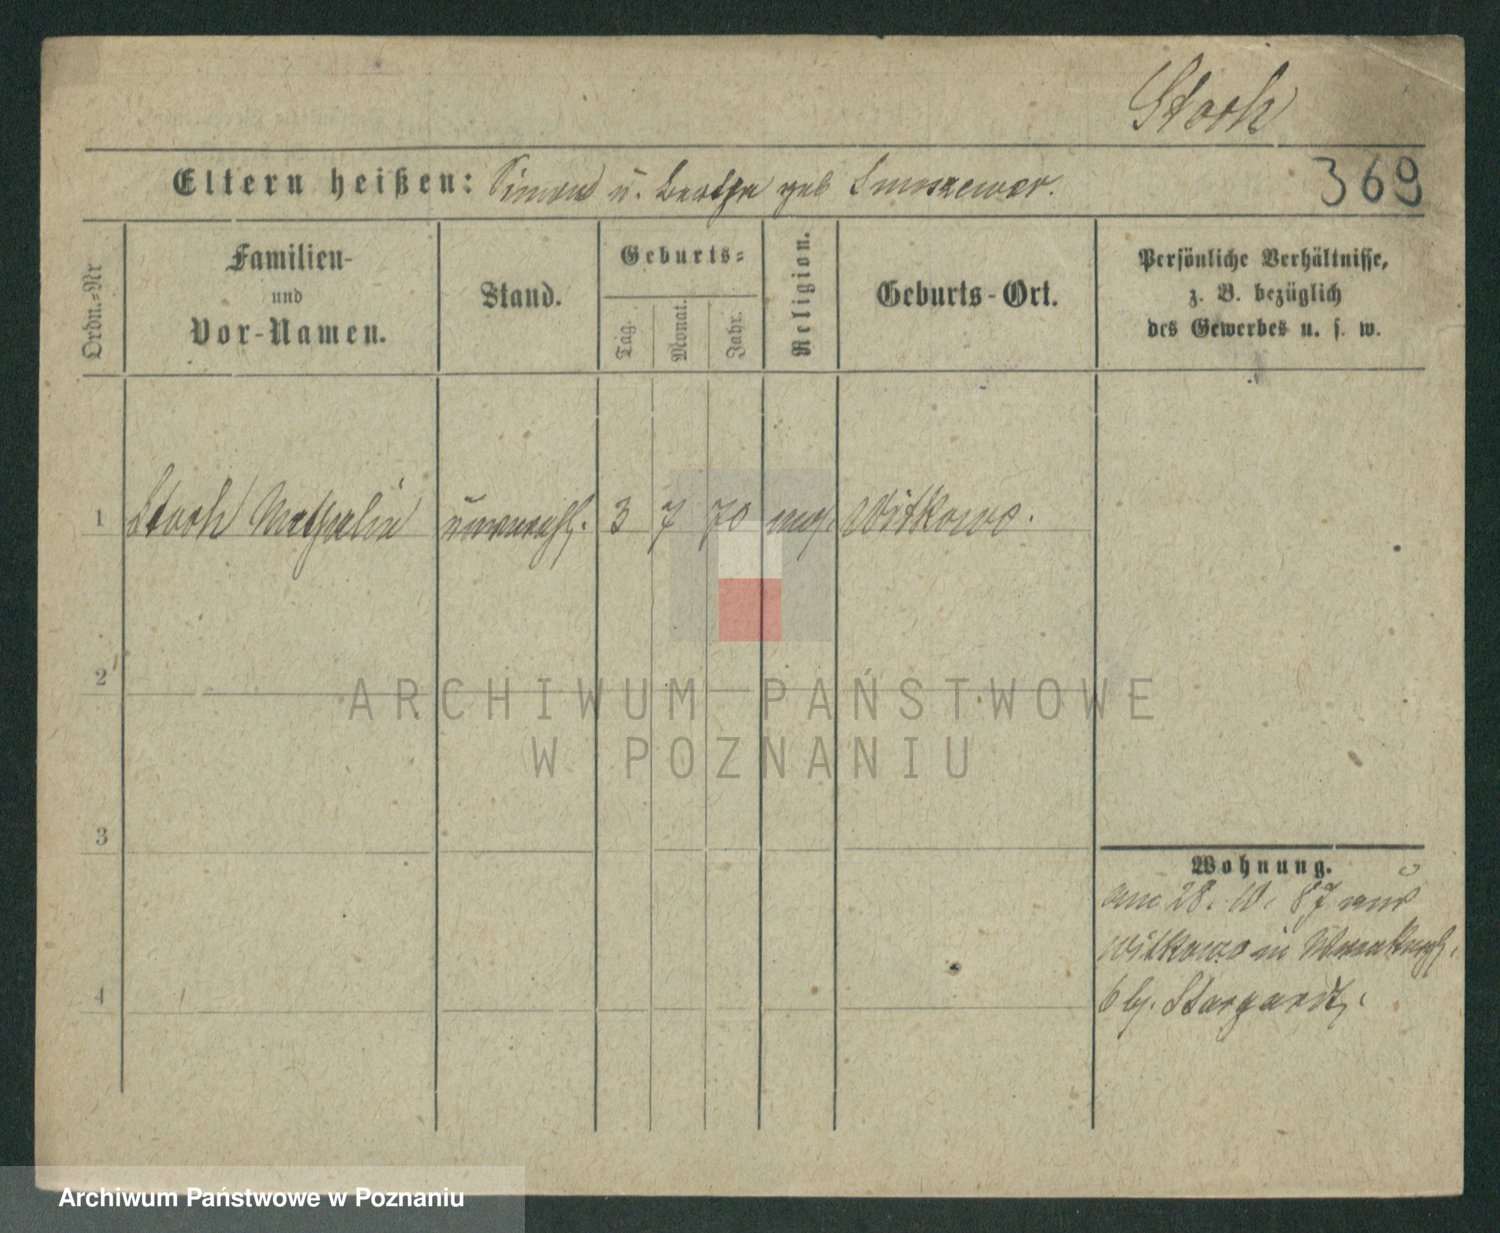 Storch
Eltern heißen: Simon u. Bertha geb Smoszewer.
369
Ordn.-Nr
Familien-
und
Vor-Namen.
Stand.
Geburts-
Tag.
Monat.
Jahr.
Religion.
Geburts-Ort.
Persönliche Verhältnisse,
z. B. bezüglich
des Gewerbes u. s. w.
1 Storch Nathalia unverehl. 3 7 70 mos. Witkowo.
2
3
4
Wohnung.
am 28. 10. 87 aus
Witkowo in
6 bj. Stargardt.
ARCHIWUM PAŃSTWOWE
W POZNANIU
Archiwum Państwowe w Poznaniu